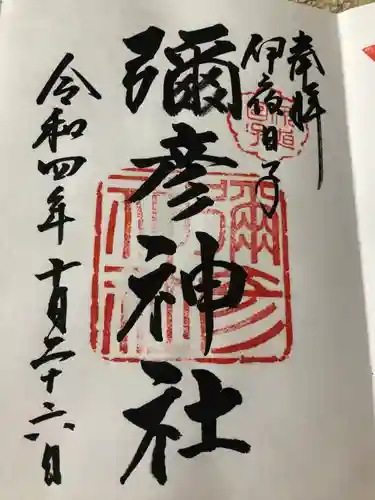 奉拝
伊夜日子
彌彦神社
令和四年十月二十六日